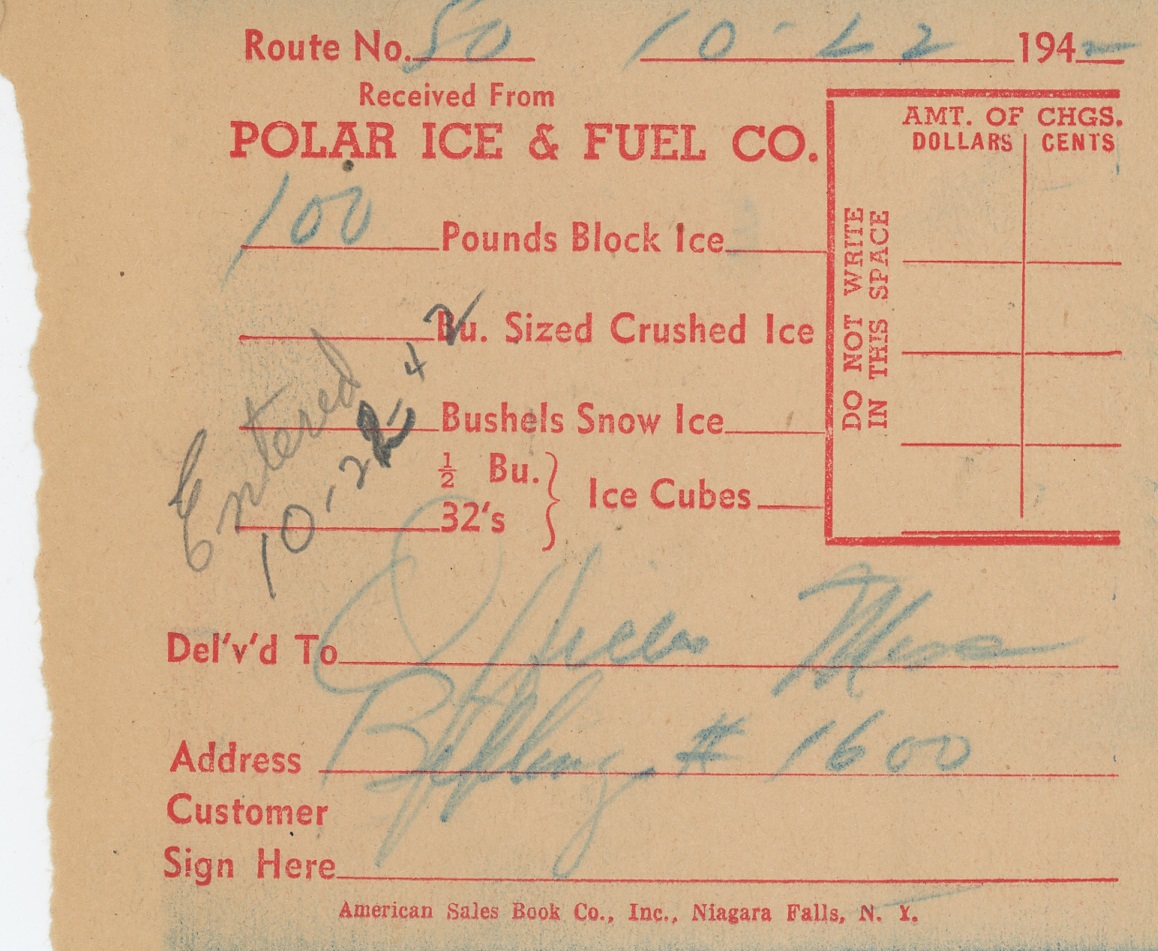 Route No. 50 10-22 1942
Received From
POLAR ICE & FUEL CO.
AMT. OF CHGS.
DOLLARS CENTS
DO NOT WRITE
IN THIS SPACE
100 Pounds Block Ice
Bu. Sized Crushed Ice
Bushels Snow Ice
½ Bu.
32's
Ice Cubes
Entered
10-22-42
Del'v'd To Officers Mess
Address Bldg # 1600
Customer
Sign Here
American Sales Book Co., Inc., Niagara Falls, N. Y.